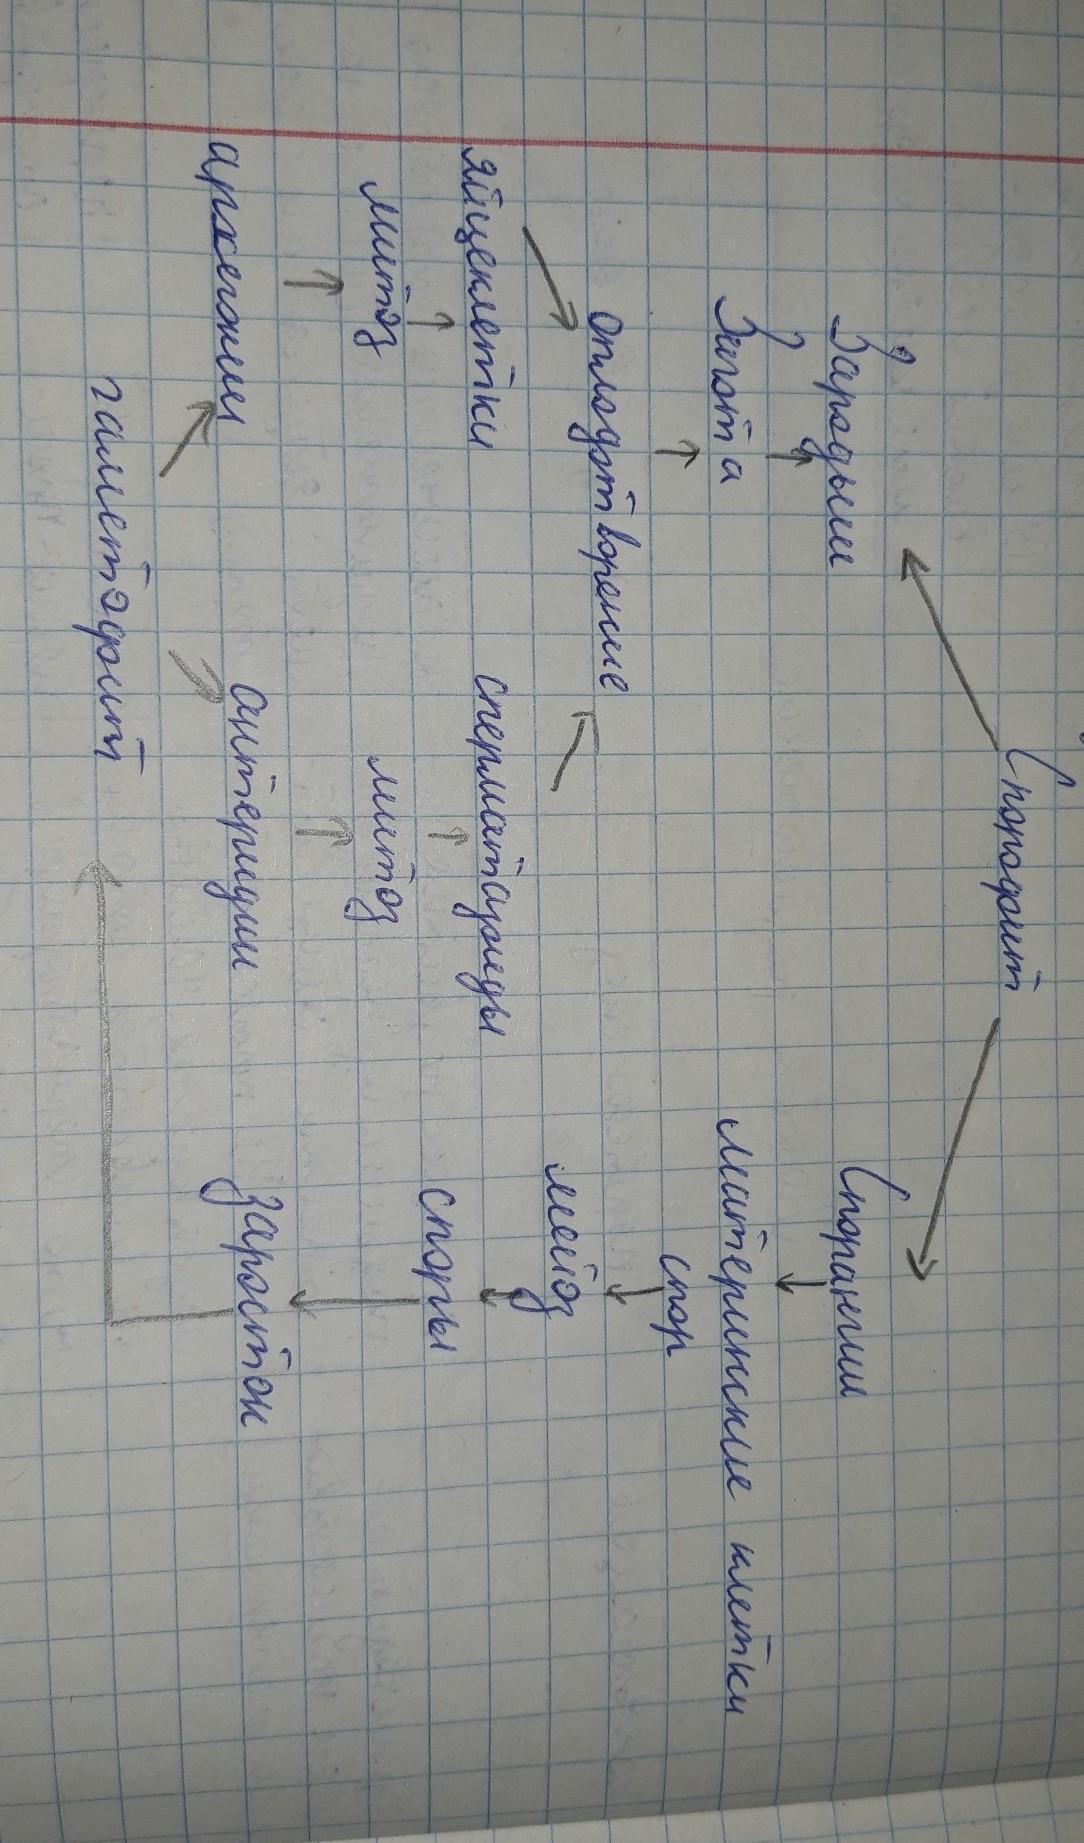 Спорофит
Зародыш
Спорангии
Зигота
материнские клетки
спор
оплодотворение
мейоз
яйцеклетки
сперматозоиды
споры
митоз
митоз
архегонии
антеридии
заросток
гаметофит